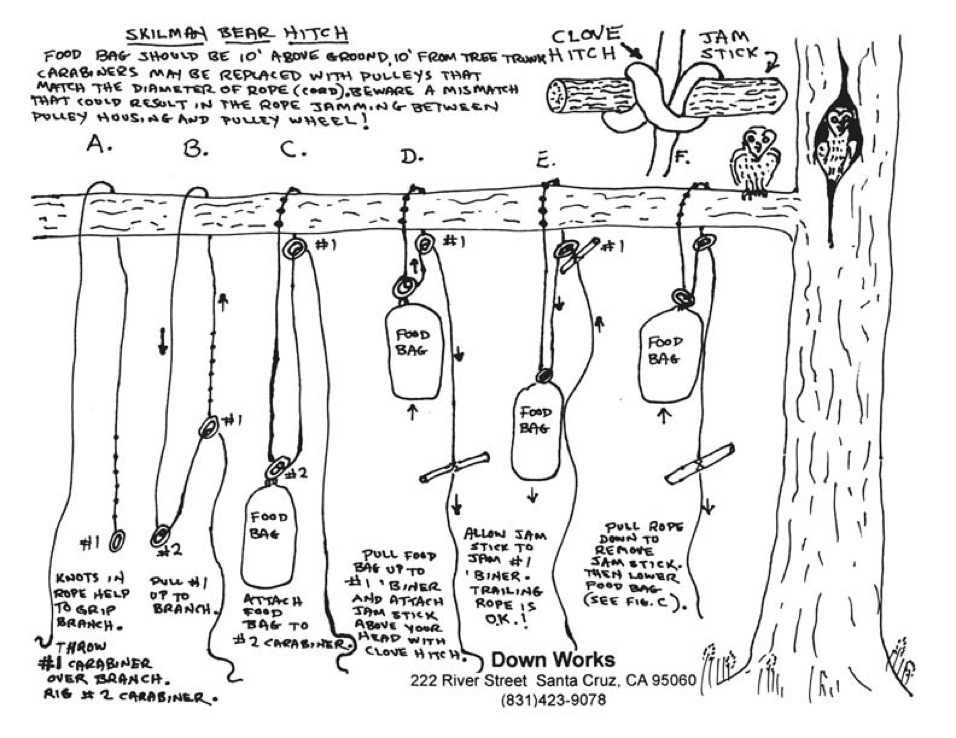 SKILMAN BEAR HITCH
FOOD BAG SHOULD BE 10' ABOVE GROUND, 10' FROM TREE TRUNK
CARABINERS MAY BE REPLACED WITH PULLEYS THAT
MATCH THE DIAMETER OF ROPE (CORD). BEWARE A MISMATCH
THAT COULD RESULT IN THE ROPE JAMMING BETWEEN
PULLEY HOUSING AND PULLEY WHEEL!
CLOVE
HITCH
JAM
STICK
A. B. C. D. E. F.
#1
#1
#1
FOOD
BAG
FOOD
BAG
#1
FOOD
BAG
#2
FOOD
BAG
#1
#2
KNOTS IN
ROPE HELP
TO GRIP
BRANCH.
THROW
#1 CARABINER
OVER BRANCH.
RIG #2 CARABINER.
PULL #1
UP TO
BRANCH.
ATTACH
FOOD
BAG TO
#2 CARABINER.
PULL FOOD
BAG UP TO
#1 'BINER
AND ATTACH
JAM STICK
ABOVE YOUR
HEAD WITH
CLOVE HITCH.
ALLOW JAM
STICK TO
JAM #1
'BINER.
TRAILING
ROPE IS
O.K.!
PULL ROPE
DOWN TO
REMOVE
JAM STICK.
THEN LOWER
FOOD BAG
(SEE FIG. C).
Down Works
222 River Street Santa Cruz, CA 95060
(831)423-9078